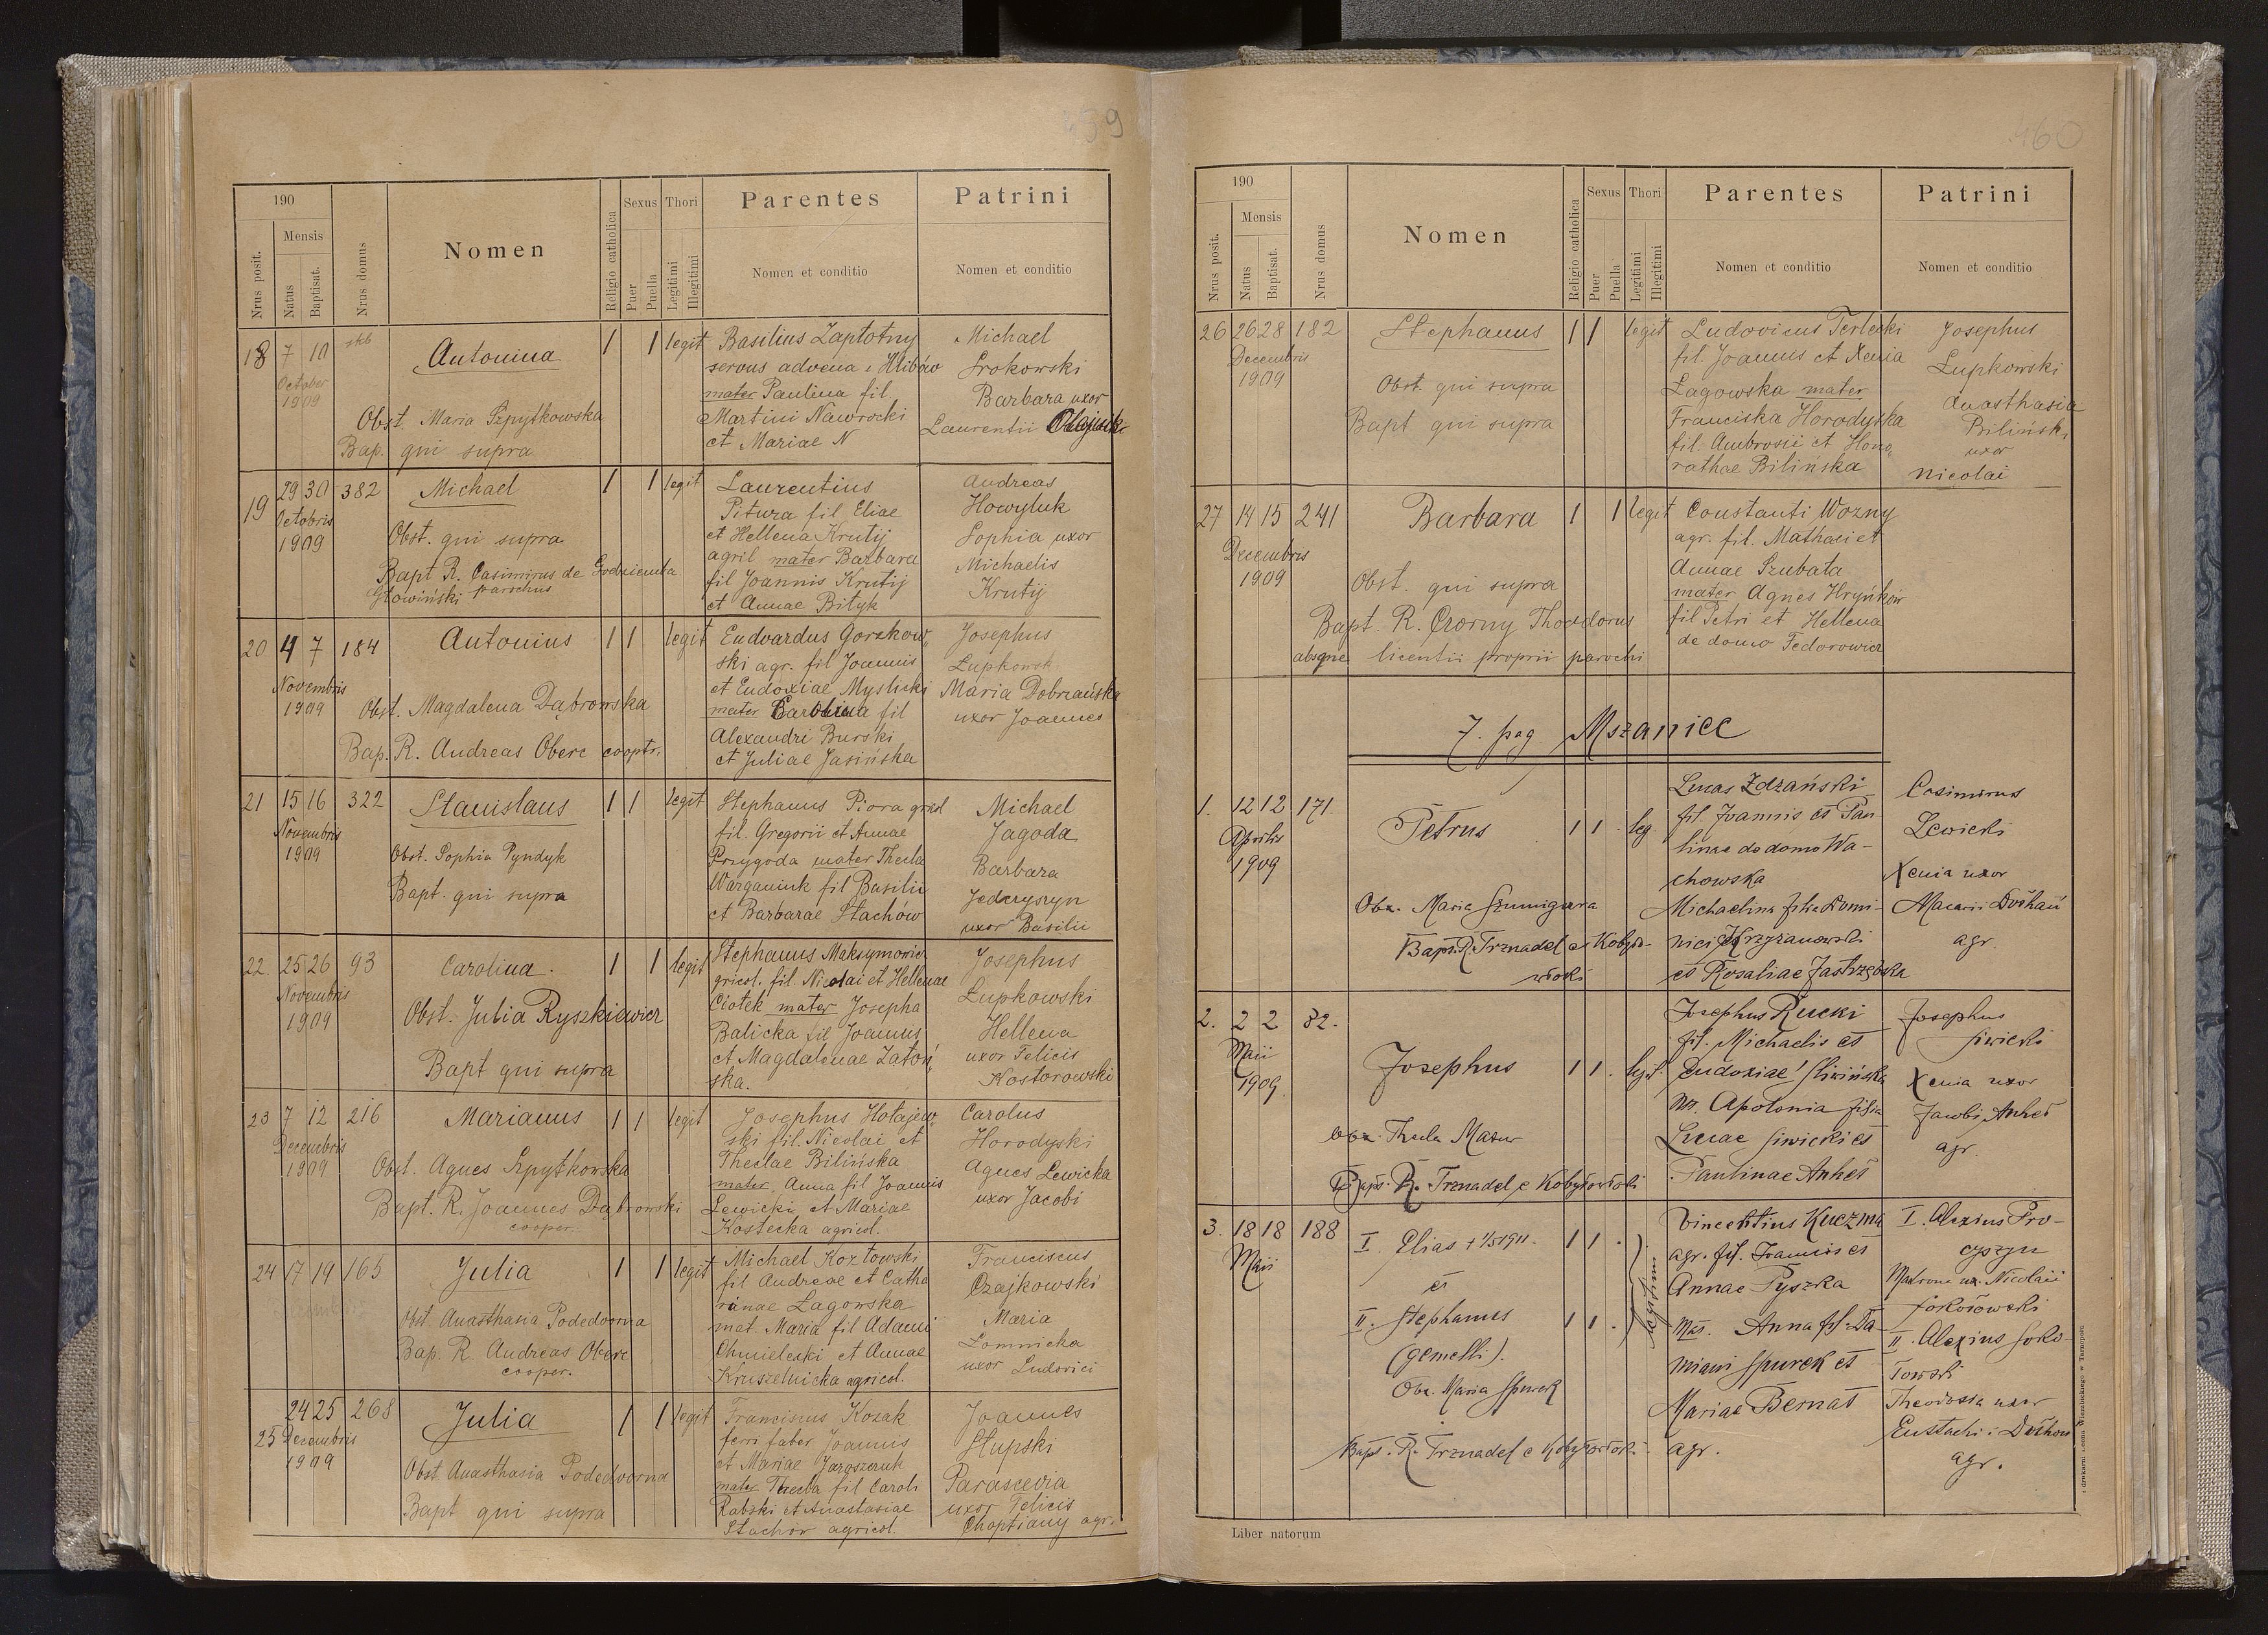 459
190
Nrus posit.
Mensis
Natus
Baptisat.
Nrus domus
Nomen
Religio catholica
Sexus
Puer
Puella
Thori
Legitimi
Illegitimi
Parentes
Nomen et conditio
Patrini
Nomen et conditio
18 7 10 October 1909
Antonina 1 1 legit
Obst. Maria Szpytkowska
Bap. qui supra
Basilius Zaptotny
servus advena e Hlibów
mater Paulina fil
Martini Nawrocki
et Mariae N
Michael
Srokowski
Barbara uxor
Laurentii
19 29 30 382 Octobris 1909
Michael 1 1 legit
Obst. qui supra
Bapt R. Casimirus de Godziemba
Głowiński parochus
Laurentius
Pitura fil Eliae
et Hellena Krutij
agril mater Barbara
fil Joannis Krutij
et Annae Bityk
Andreas
Howyluk
Sophia uxor
Michaelis
Krutij
20 4 7 184 Novembris 1909
Antonius 1 1 legit
Obst. Magdalena Dąbrowska
Bap. R. Andreas Oberc cooptr.
Eudvardus Gorzkow„
ski agr. fil Joannis
et Eudoxiae Myslicki
mater Carolina fil
Alexandri Burski
et Juliae Jasińska
Josephus
Łupkowsk
Maria Dobrzańska
uxor Joannes
21 15 16 322 Novembris 1909
Stanislaus 1 1 legit
Obst. Sophia Pyndyk
Bapt. qui supra
Stephanus Piora gricl
fil. Gregorii et Annae
Przygoda mater Thecla
Warganiuk fil Basilii
et Barbarae Stachów
Michael
Jagoda
Barbara
Jedcryszyn
uxor Basilii
22. 25 26 93 Novembris 1909
Carolina. 1 1 legit
Obst. Julia Ryszkiewicz
Bapt qui supra
Stephanus Maksymowicz
gricol. fil. Nicolai et Hellenae
Ciotek mater Josepha
Balicka fil Joannis
et Magdalenae Zatoń„
ska.
Josephus
Łupkowski
Hellena
uxor Felicis
Kostorowski
23 7 12 216 Decembris 1909
Marianus 1 1 legit
Obst. Agnes Szpytkowska
Bapt. R. Joannes Dąbrowski
cooper.
Josephus Hołajew„
ski fil. Nicolai et
Theclae Bilińska
mater Anna fil Joannis
Lewicki et Mariae
Kostecka agricol.
Carolus
Horodyski
Agnes Lewicka
uxor Jacobi
24 17 19 165
Julia 1 1 legit
Obst. Anasthasia Podedvorna
Bap. R. Andreas Oberc
cooper.
Michael Kozłowski
fil Andreae et Catha
rinae Łagowska
mat. Maria fil Adami
Chmielecki et Annae
Kruszelnicka agricol.
Franciscus
Czajkowski
Maria
Łomnicka
uxor Ludovici
25 24 25 268 Decembris 1909
Julia 1 1 legit
Obst. Anasthasia Podedvorna
Bapt qui supra
Franciscus Kozak
ferri faber Joannis
et Mariae Jaroszczuk
mater Thecla fil Caroli
Rabski et Anastasiae
Stachor agricol.
Joannes
Słupski
Parascevia
uxor Felicis
Choptiany agr.
460
190
Nrus posit.
Mensis
Natus
Baptisat.
Nrus domus
Nomen
Religio catholica
Sexus
Puer
Puella
Thori
Legitimi
Illegitimi
Parentes
Nomen et conditio
Patrini
Nomen et conditio
26 26 28 182 Decembris 1909
Stephanus 1 1 legit
Obst. qui supra
Bapt qui supra
Ludovicus Terlecki
fil. Joannis et Xenia
Łagowska mater
Franciska Horodyska
fil. Ambrosii et Hono„
rathae Bilińska
Josephus
Łupkowski
Anasthasia
Bilińsk.
uxor
Nicolai
27 14 15 241 Decembris 1909
Barbara 1 1 legit
Obst. qui supra
Bapt. R. Czorny Thoedorus
absque licentii proprii parochi
Constanti Wozny
agr. fil. Mathaei et
Annae Szubata
mater Agnes Hryńków
fil Petri et Hellena
de domo Fedorowicz
7. pag Mszaniec
1. 12 12 171. Aprilis 1909
Petrus 1 1 . leg.
Obx. Maria Szumigura
Bapt. R. Trznadel e Kobyło-
włoki
Lucas Zdzański
fil. Joannis et Pau
linae de domo Wa-
chowska
Michaelina filia Domi-
nici Krzyżanowski
et Rosaliae Jastrzębska
Casimirus
Lewicki
Xenia uxor
Macarii Dołhań
agr.
2. 2 2 82. Maii 1909.
Josephus 1 1 . legt.
Obx. Thecla Mazur
Bapt. R. Trznadel e Kobyłowłoki
Josephus Rucki
fil. Michaelis et
Eudoxiae Sliwińska
mr. Apolonia filia
Lucae Siwicki et
Paulinae Anhel
Josephus
Siwicki
Xenia uxor
Jacobi Anhel
agr.
3. 18 18 188 Maii
I. Elias † 1/5 1911. 1 1 .
et
II. Stephanus 1 1 .
(gemelli).
legitim.
Obx. Maria Spurek
Bapt. R. Trznadel e Kobyłowłoki
Vincentius Kuczma
agr. fil. Joannis et
Annae Pyszka
Mat. Anna fil. Da
miani Spurek et
Mariae Bernat
agr.
I. Alexius Pro-
cyszyn
Matrona ux. Nicolaii
Sokołowski
II. Alexius Soko-
łowski
Theodosia uxor
Eustachi i Dołhań
agr.
Liber natorum
z drukarni Leona Wierzbickiego w Tarnopolu